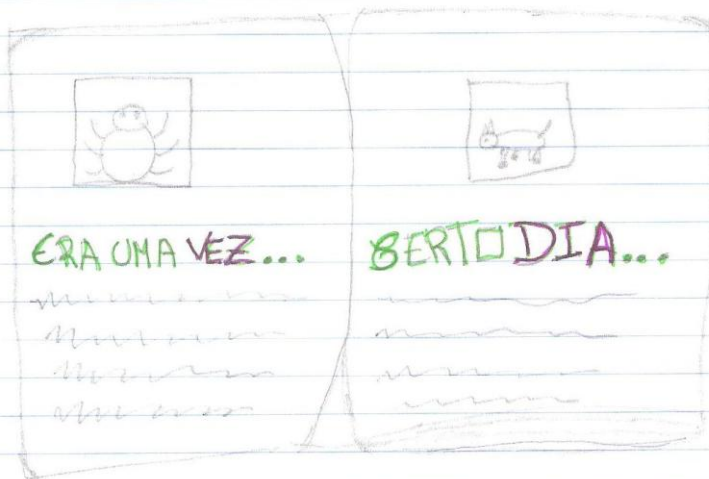 ERA UMA VEZ...
BERTO DIA...